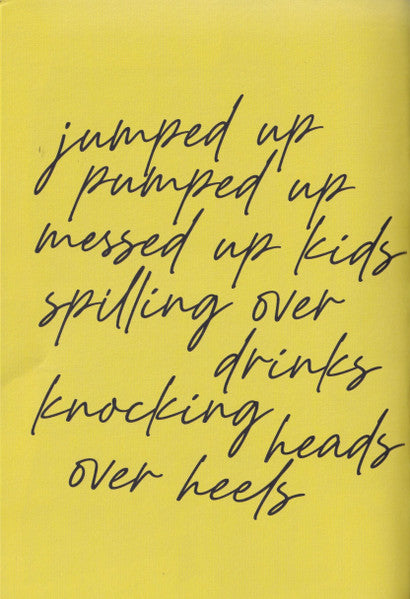 jumped up
pumped up
messed up kids
spilling over
drinks
knocking
heads
over heels